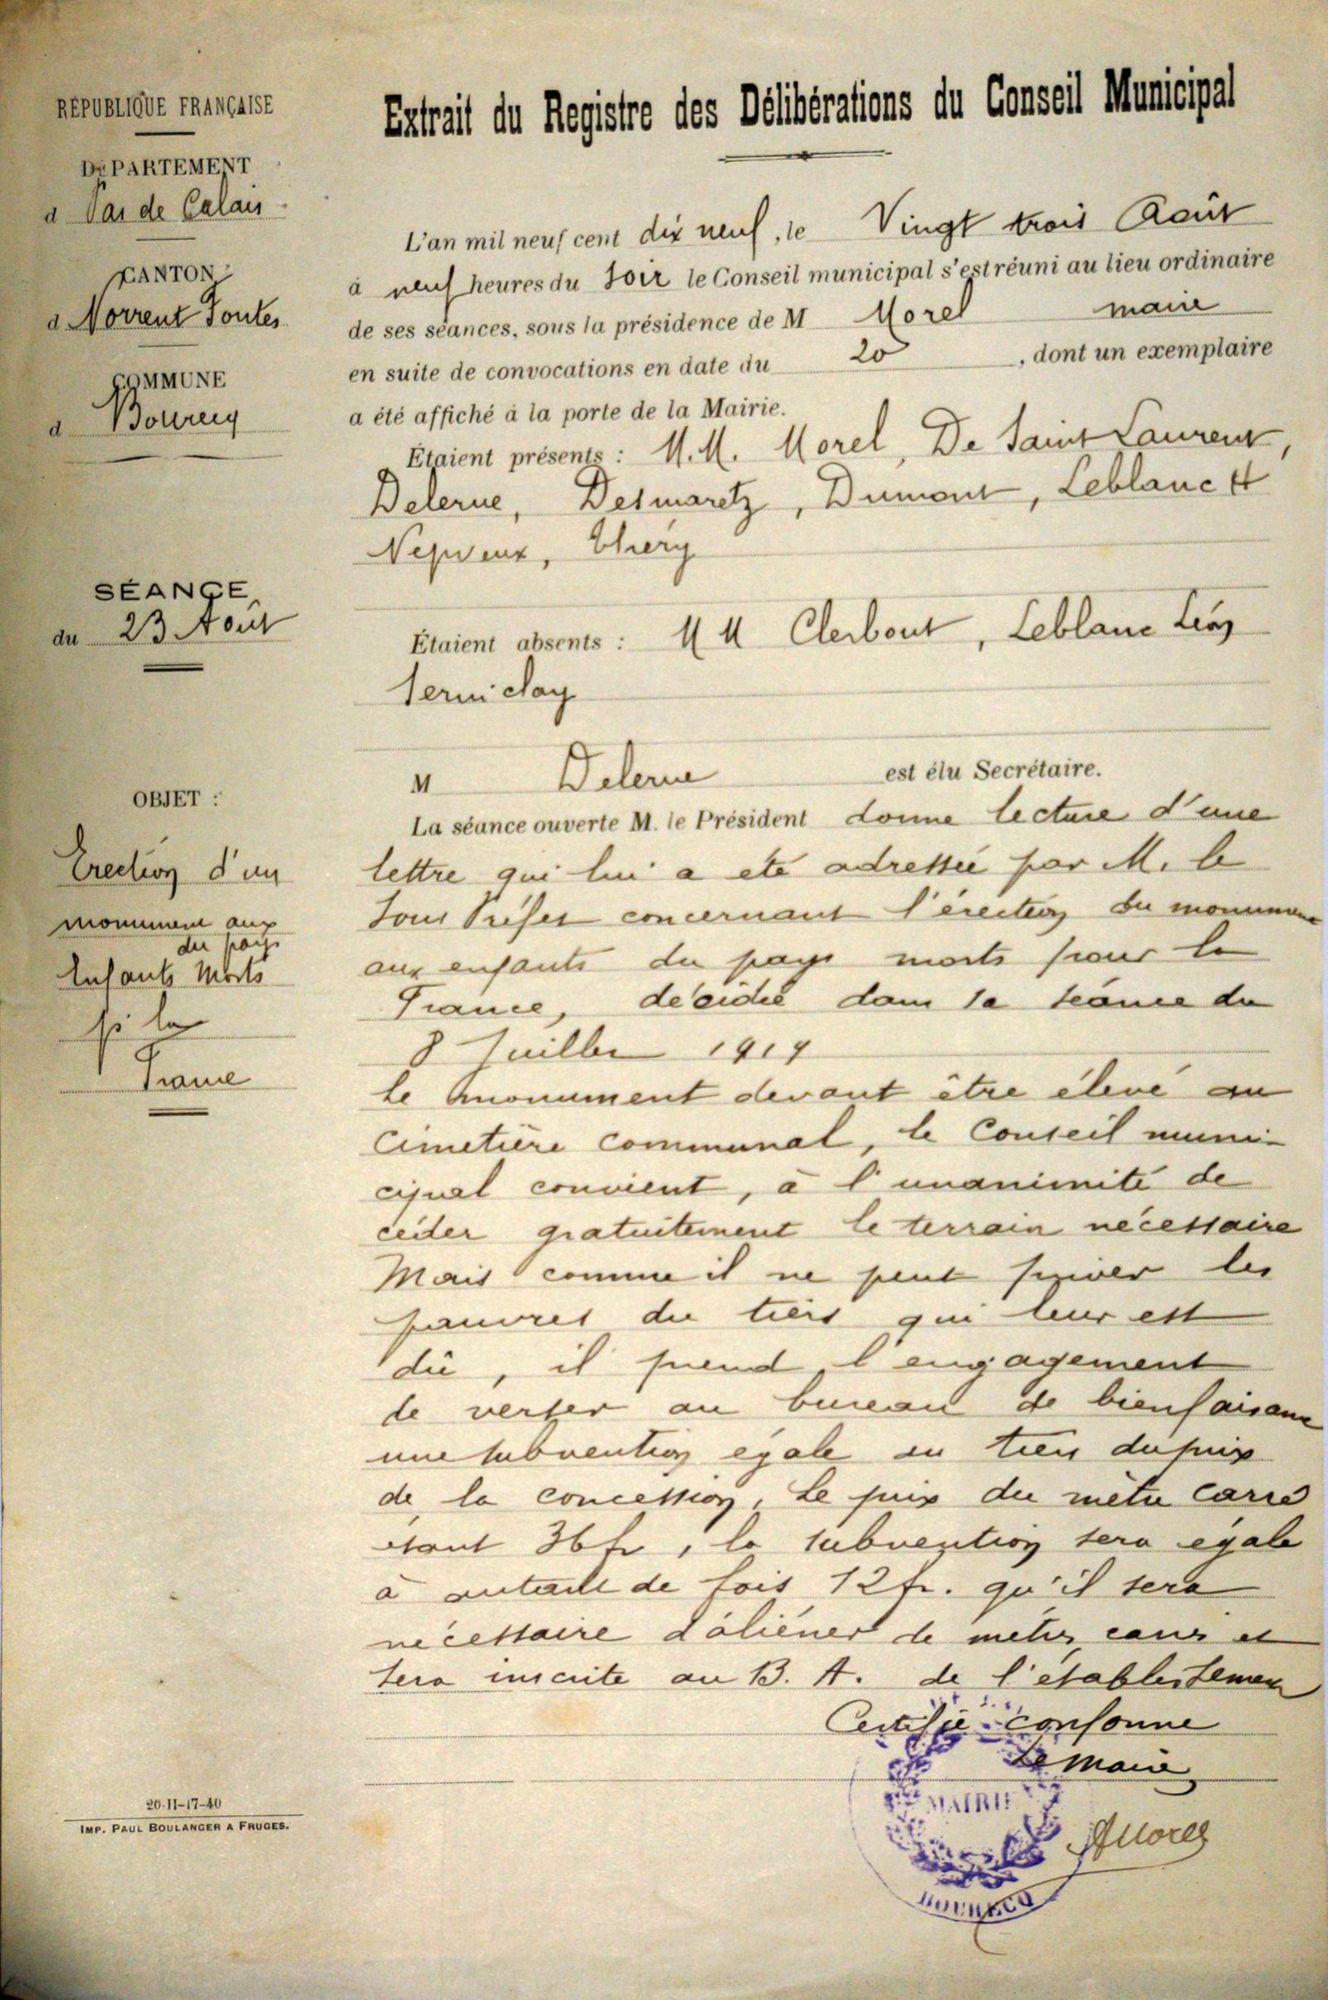 RÉPUBLIQUE FRANÇAISE
DÉPARTEMENT
d Pas de Calais
CANTON
d Norrent Fontes
COMMUNE
d Bourecq
SÉANCE
du 23 Août
OBJET :
Erection d'un
monument aux
du pays
Enfants Morts
pr la
France
20-11-17-40
IMP. PAUL BOULANGER A FRUGES.
Extrait du Registre des Délibérations du Conseil Municipal
L'an mil neuf cent dix neuf, le Vingt trois Août
à neuf heures du soir le Conseil municipal s'est réuni au lieu ordinaire
de ses séances, sous la présidence de M Morel maire
en suite de convocations en date du 20 , dont un exemplaire
a été affiché à la porte de la Mairie.
Étaient présents : M.M. Morel, De Saint Laurent,
Delerue, Desmaretz, Dumont, Leblanc H
Nepveux, Théry
Étaient absents : M M Clerbout, Leblanc Léon
Terniclay
M Delerue est élu Secrétaire.
La séance ouverte M. le Président donne lecture d'une
lettre qui lui a été adressée par M. le
Sous Préfet concernant l'érection du monument
aux enfants du pays morts pour la
France, décidée dans la séance du
8 Juillet 1919
Le monument devant être élevé au
cimetière communal, le Conseil muni-
cipal convient, à l'unanimité de
céder gratuitement le terrain nécessaire
Mais comme il ne peut priver les
pauvres du tiers qui leur est
dû, il prend l'engagement
de verser au bureau de bienfaisance
une subvention égale au tiers du prix
de la concession, Le prix du mètre carré
étant 36 fr, la subvention sera égale
à autant de fois 12 fr. qu'il sera
nécessaire d'aliéner de mètres carrés et
sera inscrite au B. A. de l'établissement
Certifié conforme
Le Maire
AMorel
MAIRIE
BOURECQ